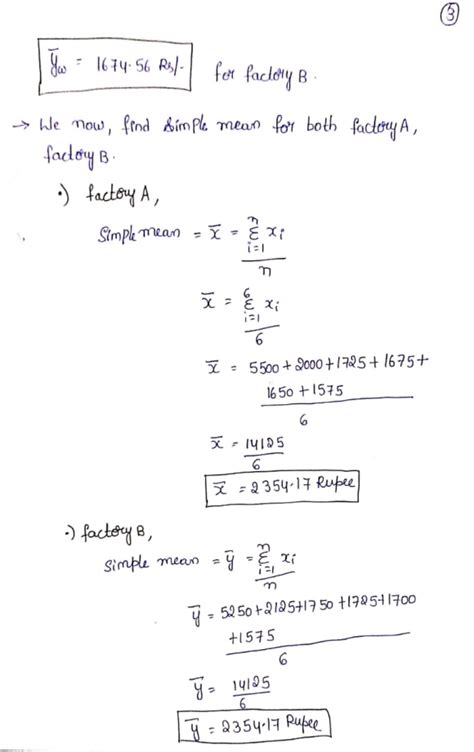 ③
ȳω = 1674.56 Rs/- for factory B.
→ We now, find simple mean for both factory A,
factory B.
•) factory A,
Simple mean = x̄ = Σ_{i=1}^{n} xᵢ / n
x̄ = Σ_{i=1}^{6} xᵢ / 6
x̄ = 5500+2000+1725+1675+
1650+1575
6
x̄ = 14125 / 6
x̄ = 2354.17 Rupee
•) factory B,
Simple mean = ȳ = Σ_{i=1}^{n} xᵢ / n
ȳ = 5250+2125+1750+1725+1700
+1575
6
ȳ = 14125 / 6
ȳ = 2354.17 Rupee